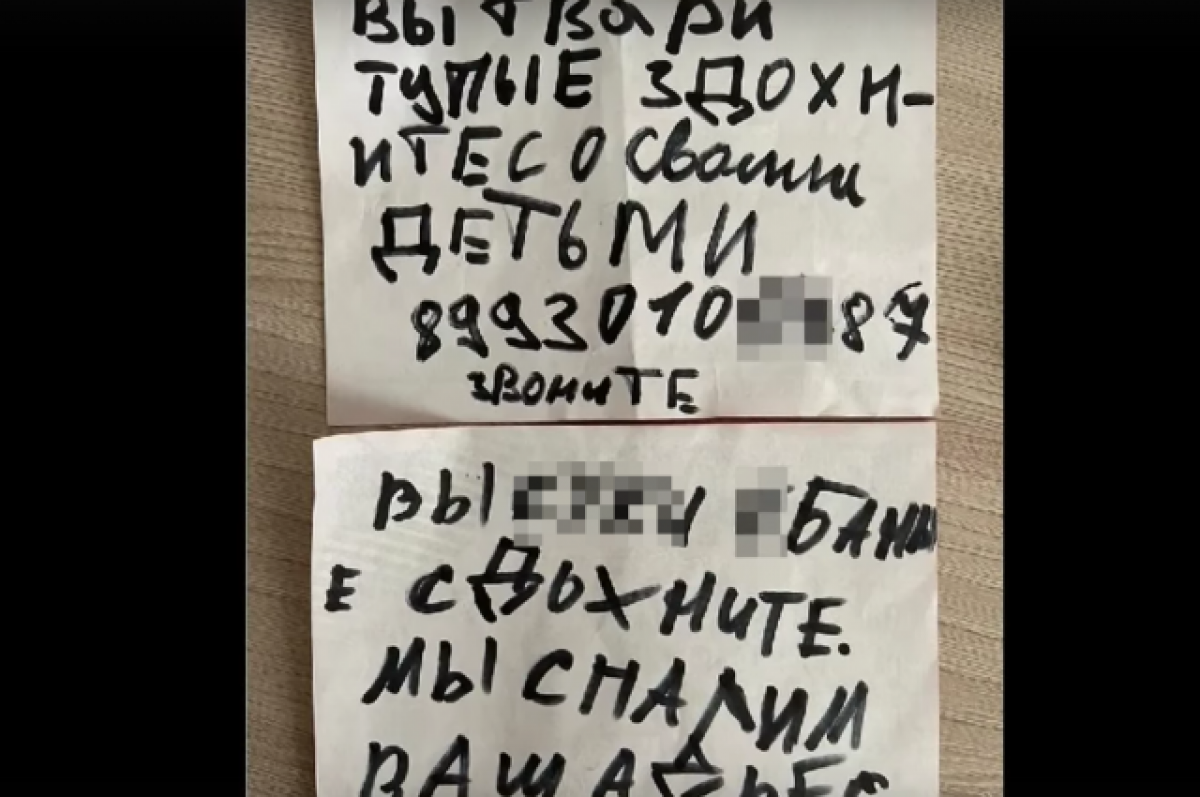 ВЫ ТВАРИ
ТУПЫЕ ЗДОХН-
ИТЕ СО Своими
ДЕТЬМИ
8993010 87
ЗВОНИТЕ
ВЫ БАНЫ
Е СДОХНИТЕ.
МЫ СПАЛИМ
ВАШ